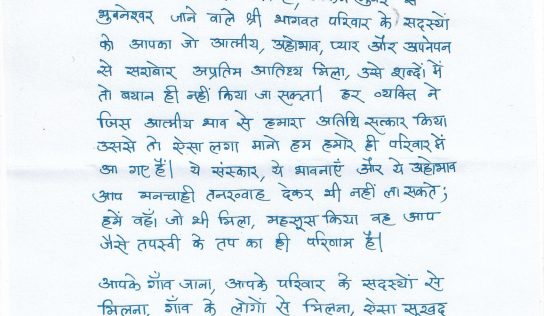 भुवनेश्वर जाने वाले श्री भागवत परिवार के सदस्यों
को आपका जो आत्मीय, अहोभाव, प्यार और अपनेपन
से सराबोर अप्रतिम आतिथ्य मिला, उसे शब्दों में
तो बयान ही नहीं किया जा सकता। हर व्यक्ति ने
जिस आत्मीय भाव से हमारा अतिथि सत्कार किया
उससे तो ऐसा लगा मानो हम हमारे ही परिवार में
आ गए हैं। ये संस्कार, ये भावनाएँ और ये अहोभाव
आप मनचाही तनख्वाह देकर भी नहीं ला सकते;
हमें वहाँ जो भी मिला, महसूस किया वह आप
जैसे तपस्वी के तप का ही परिणाम है।
आपके गाँव जाना, आपके परिवार के सदस्यों से
मिलना, गाँव के लोगों से मिलना, ऐसा सुखद